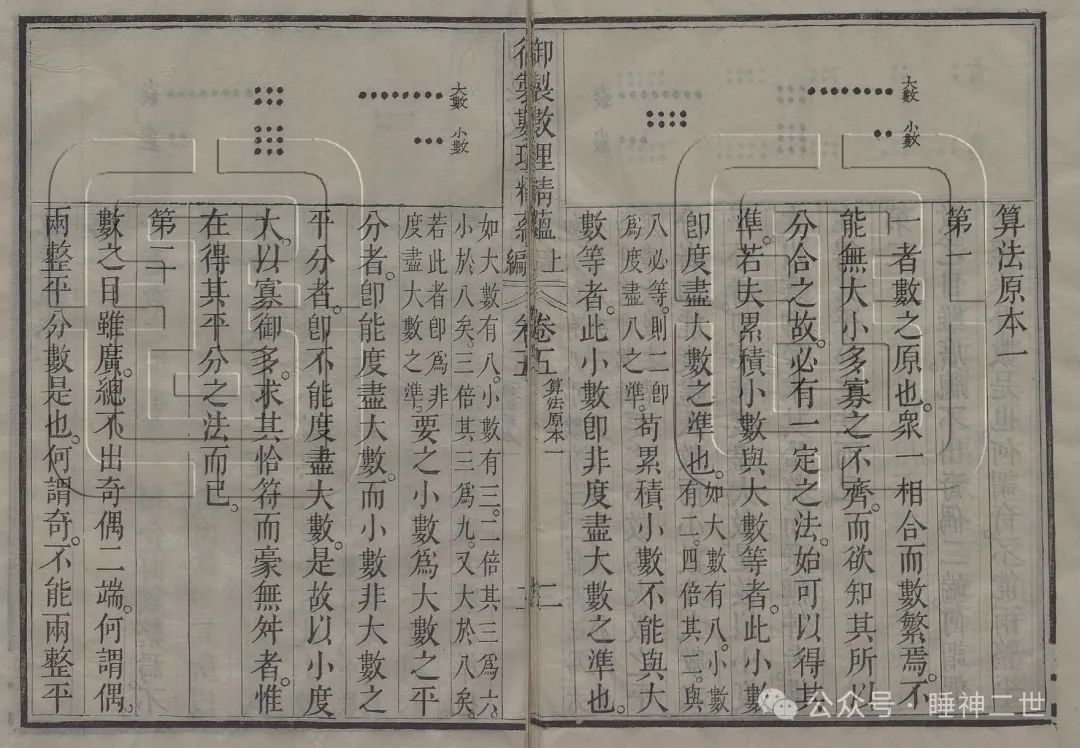 大數
小數
算法原本一
第一
一者數之原也。衆一相合而數繁焉。不
能無大小多寡之不齊。而欲知其所以
分合之故。必有一定之法。始可以得其
準。若夫累積小數與大數等者。此小數
卽度盡大數之準也。如大數有八。小數
有二。四倍其二。與
八必等。則二卽
爲度盡八之準。苟累積小數不能與大
數等者。此小數卽非度盡大數之準也。
御製數理精蘊
上編
卷五
算法原本一
二
大數
小數
如大數有八。小數有三。二倍其三爲六。
小於八矣。三倍其三爲九。又大於八矣。
若此者卽爲非
度盡大數之準。要之小數爲大數之平
分者。卽能度盡大數。而小數非大數之
平分者。卽不能度盡大數。是故以小度
大。以寡御多。求其恰符而豪無舛者。惟
在得其平分之法而已。
第二
數之目雖廣。總不出奇偶二端。何謂偶。
兩整平分數是也。何謂奇。不能兩整平
公众号·睡神二世